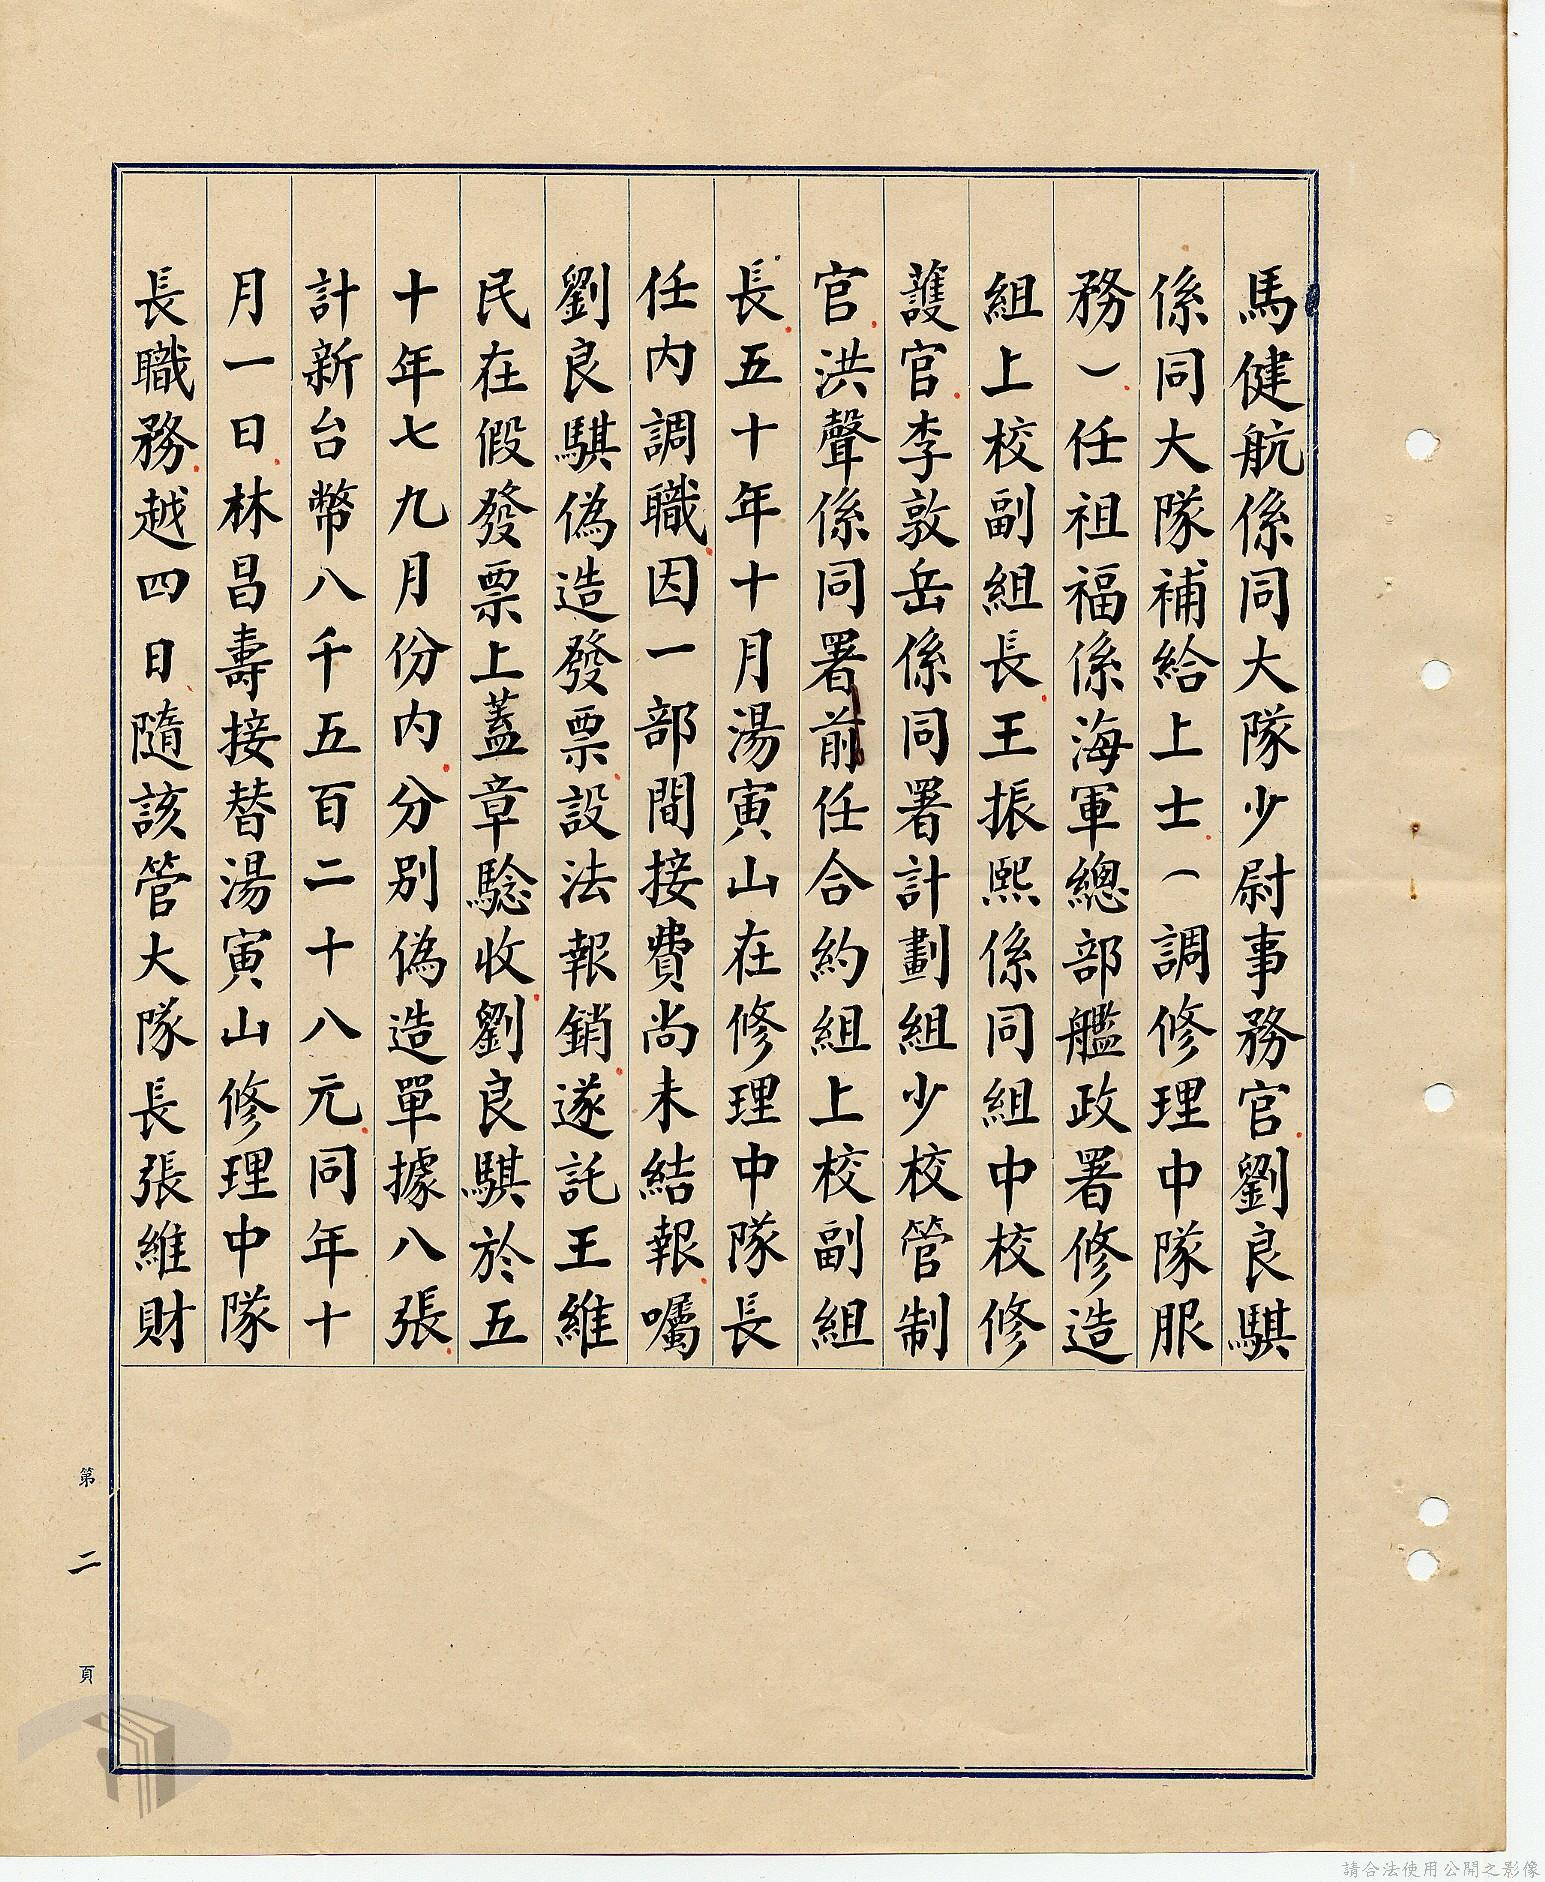 馬健航係同大隊少尉事務官劉良騏
係同大隊補給上士（調修理中隊服
務）任祖福係海軍總部艦政署修造
組上校副組長王振熙係同組中校修
護官李敦岳係同署計劃組少校管制
官洪聲係同署前任合約組上校副組
長五十年十月湯寅山在修理中隊長
任內調職因一部間接費尚未結報囑
劉良騏偽造發票設法報銷遂託王維
民在假發票上蓋章驗收劉良騏於五
十年七九月份內分別偽造單據八張
計新台幣八千五百二十八元同年十
月一日林昌壽接替湯寅山修理中隊
長職務越四日隨該管大隊長張維財
第二頁
請合法使用公開之影像